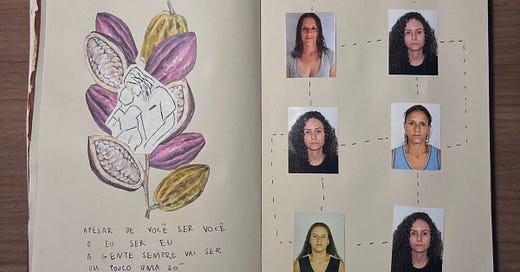 APESAR DE VOCÊ SER VOCÊ
E EU SER EU
A GENTE SEMPRE VAI SER
UM POUCO UMA SÓ